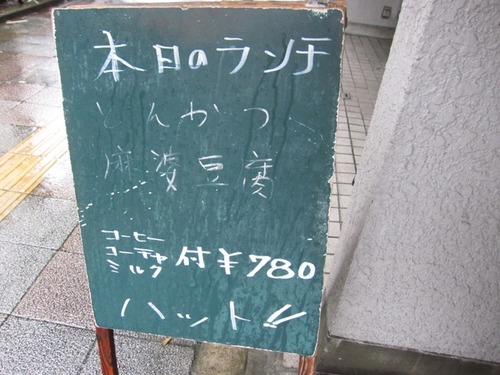 本日のランチ
とんかつ
麻婆豆腐
コーヒー
コーテャ
ミルク
付¥780
ハット!!